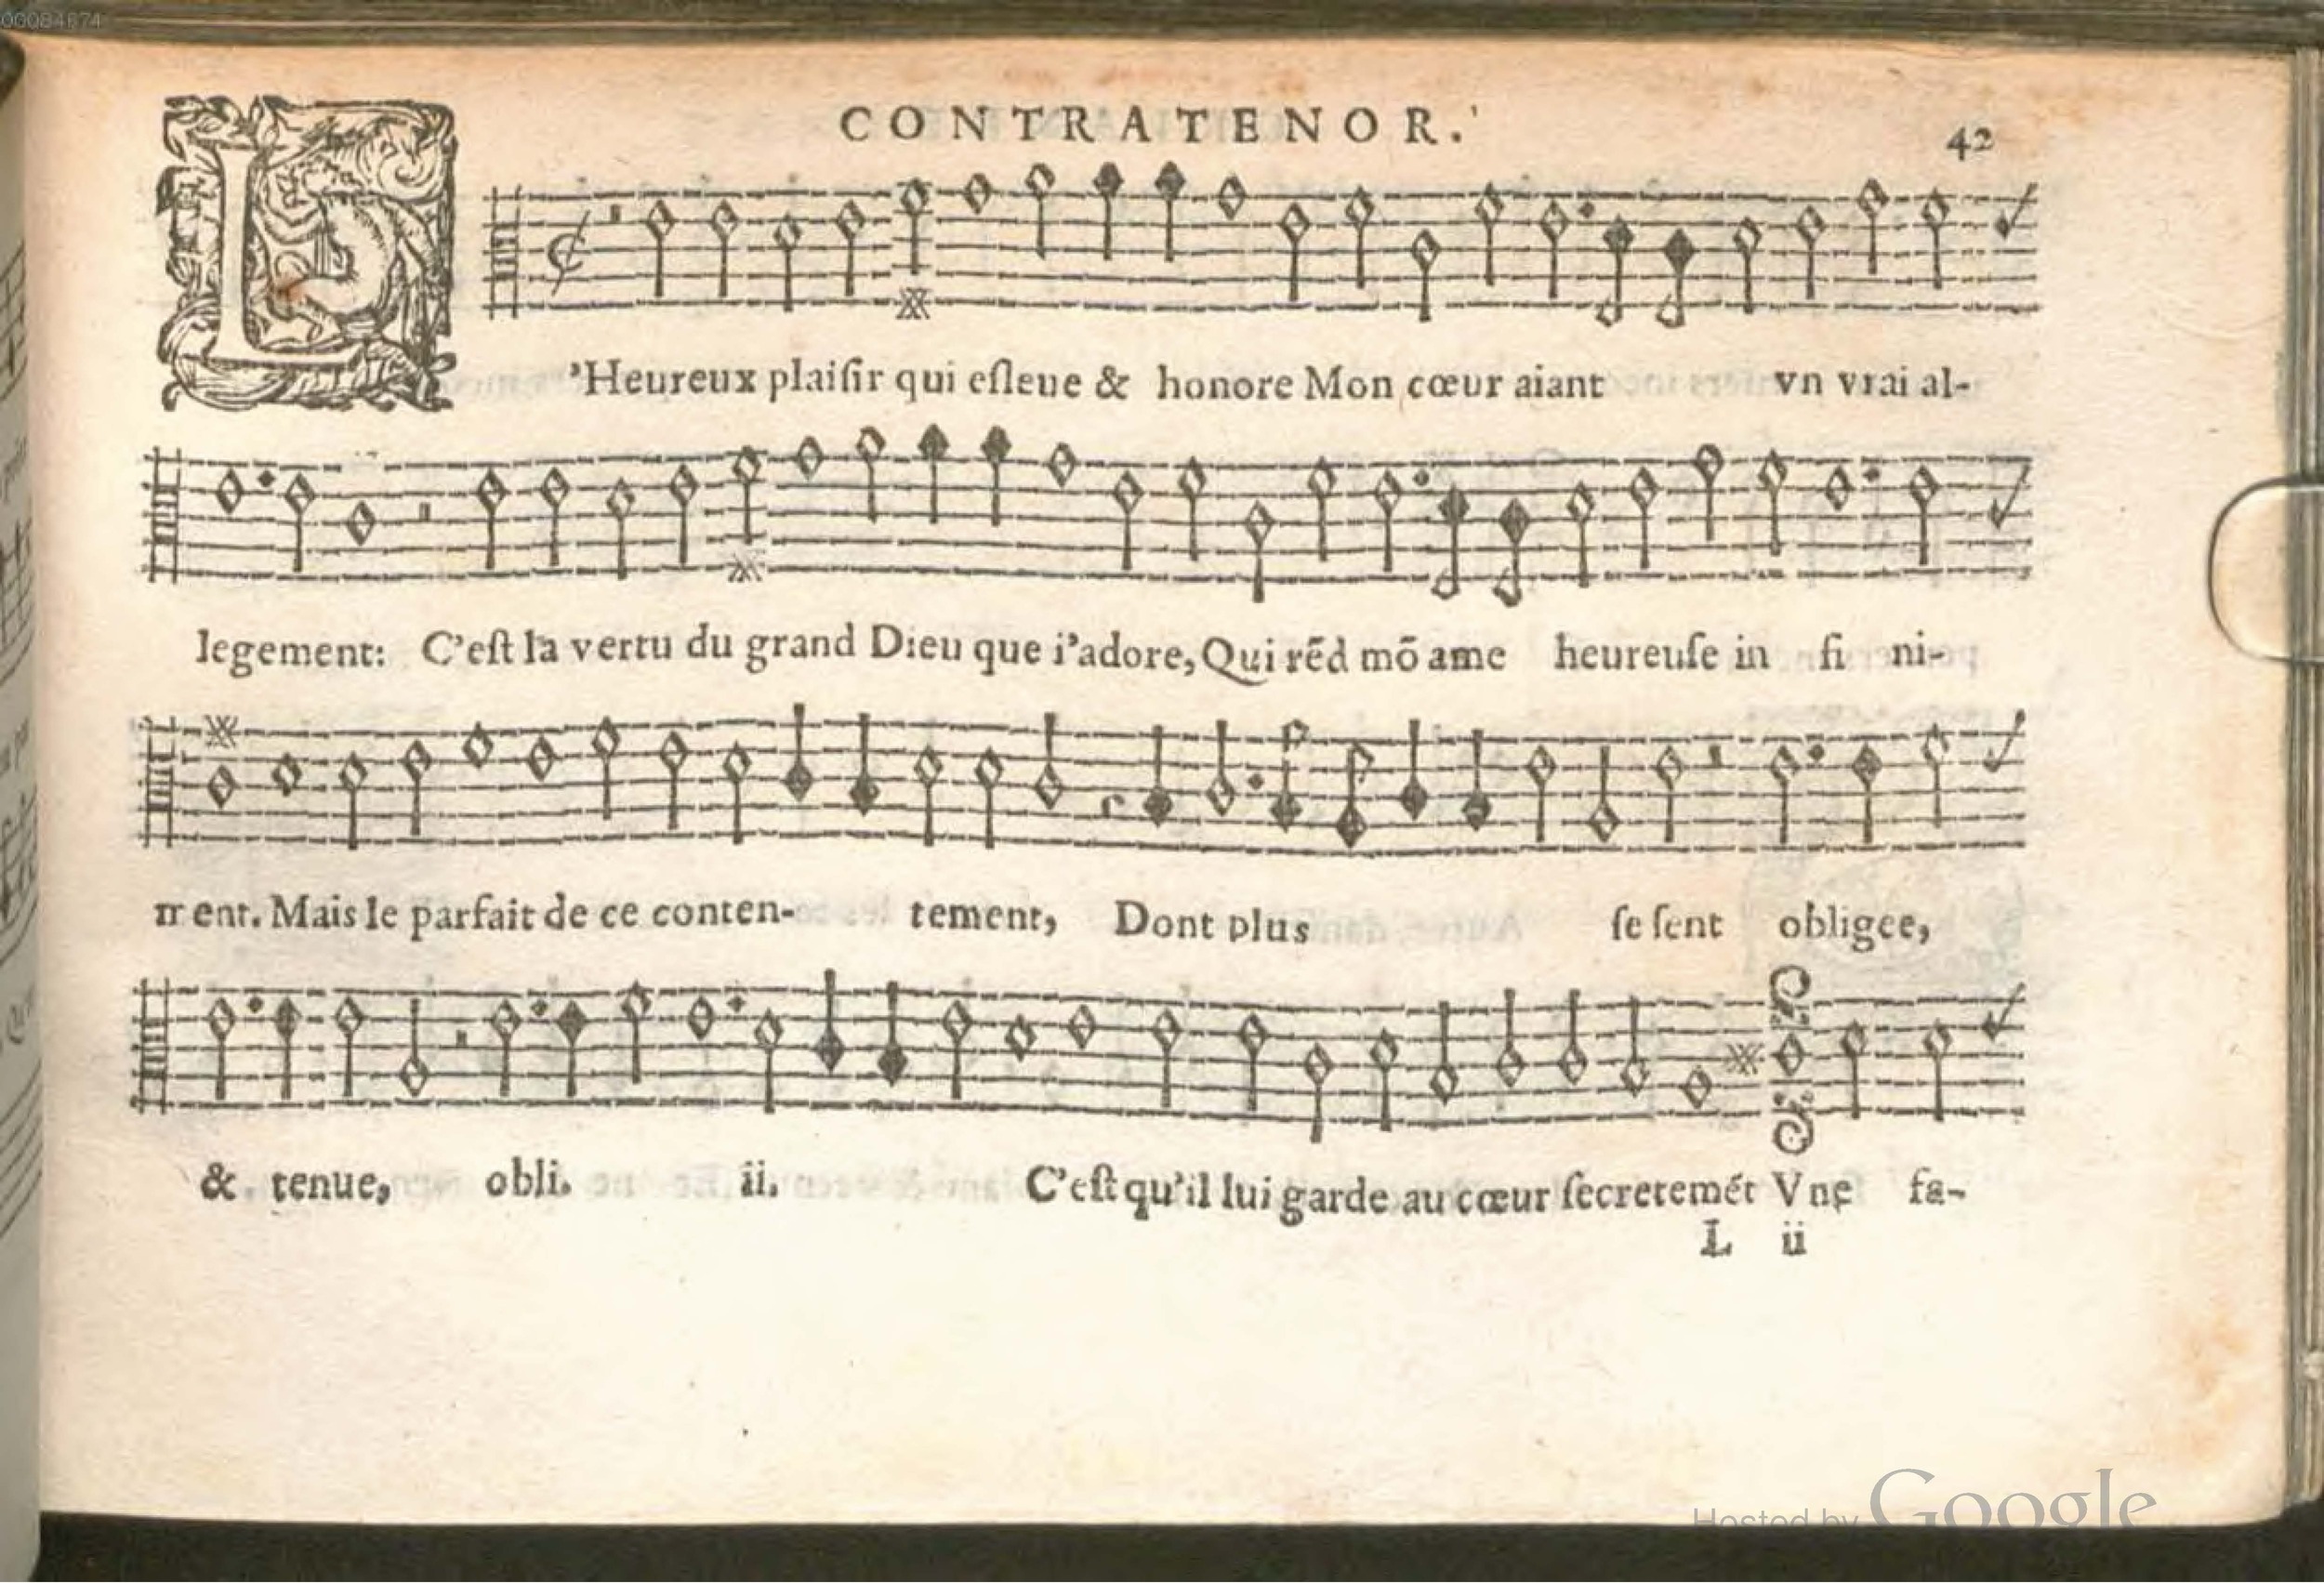 00084674
CONTRATENOR.
42
L
'Heureux plaiſir qui eſleue & honore Mon cœur aiant vn vrai al-
legement: C'eſt la vertu du grand Dieu que i'adore, Qui rẽd mõ ame heureuſe in fi ni-
ment. Mais le parfait de ce conten- tement, Dont plus ſe ſent obligee,
& tenue, obli. ii. C'eſt qu'il lui garde au cœur ſecretemét Vne fa-
L ii
Hosted by Google